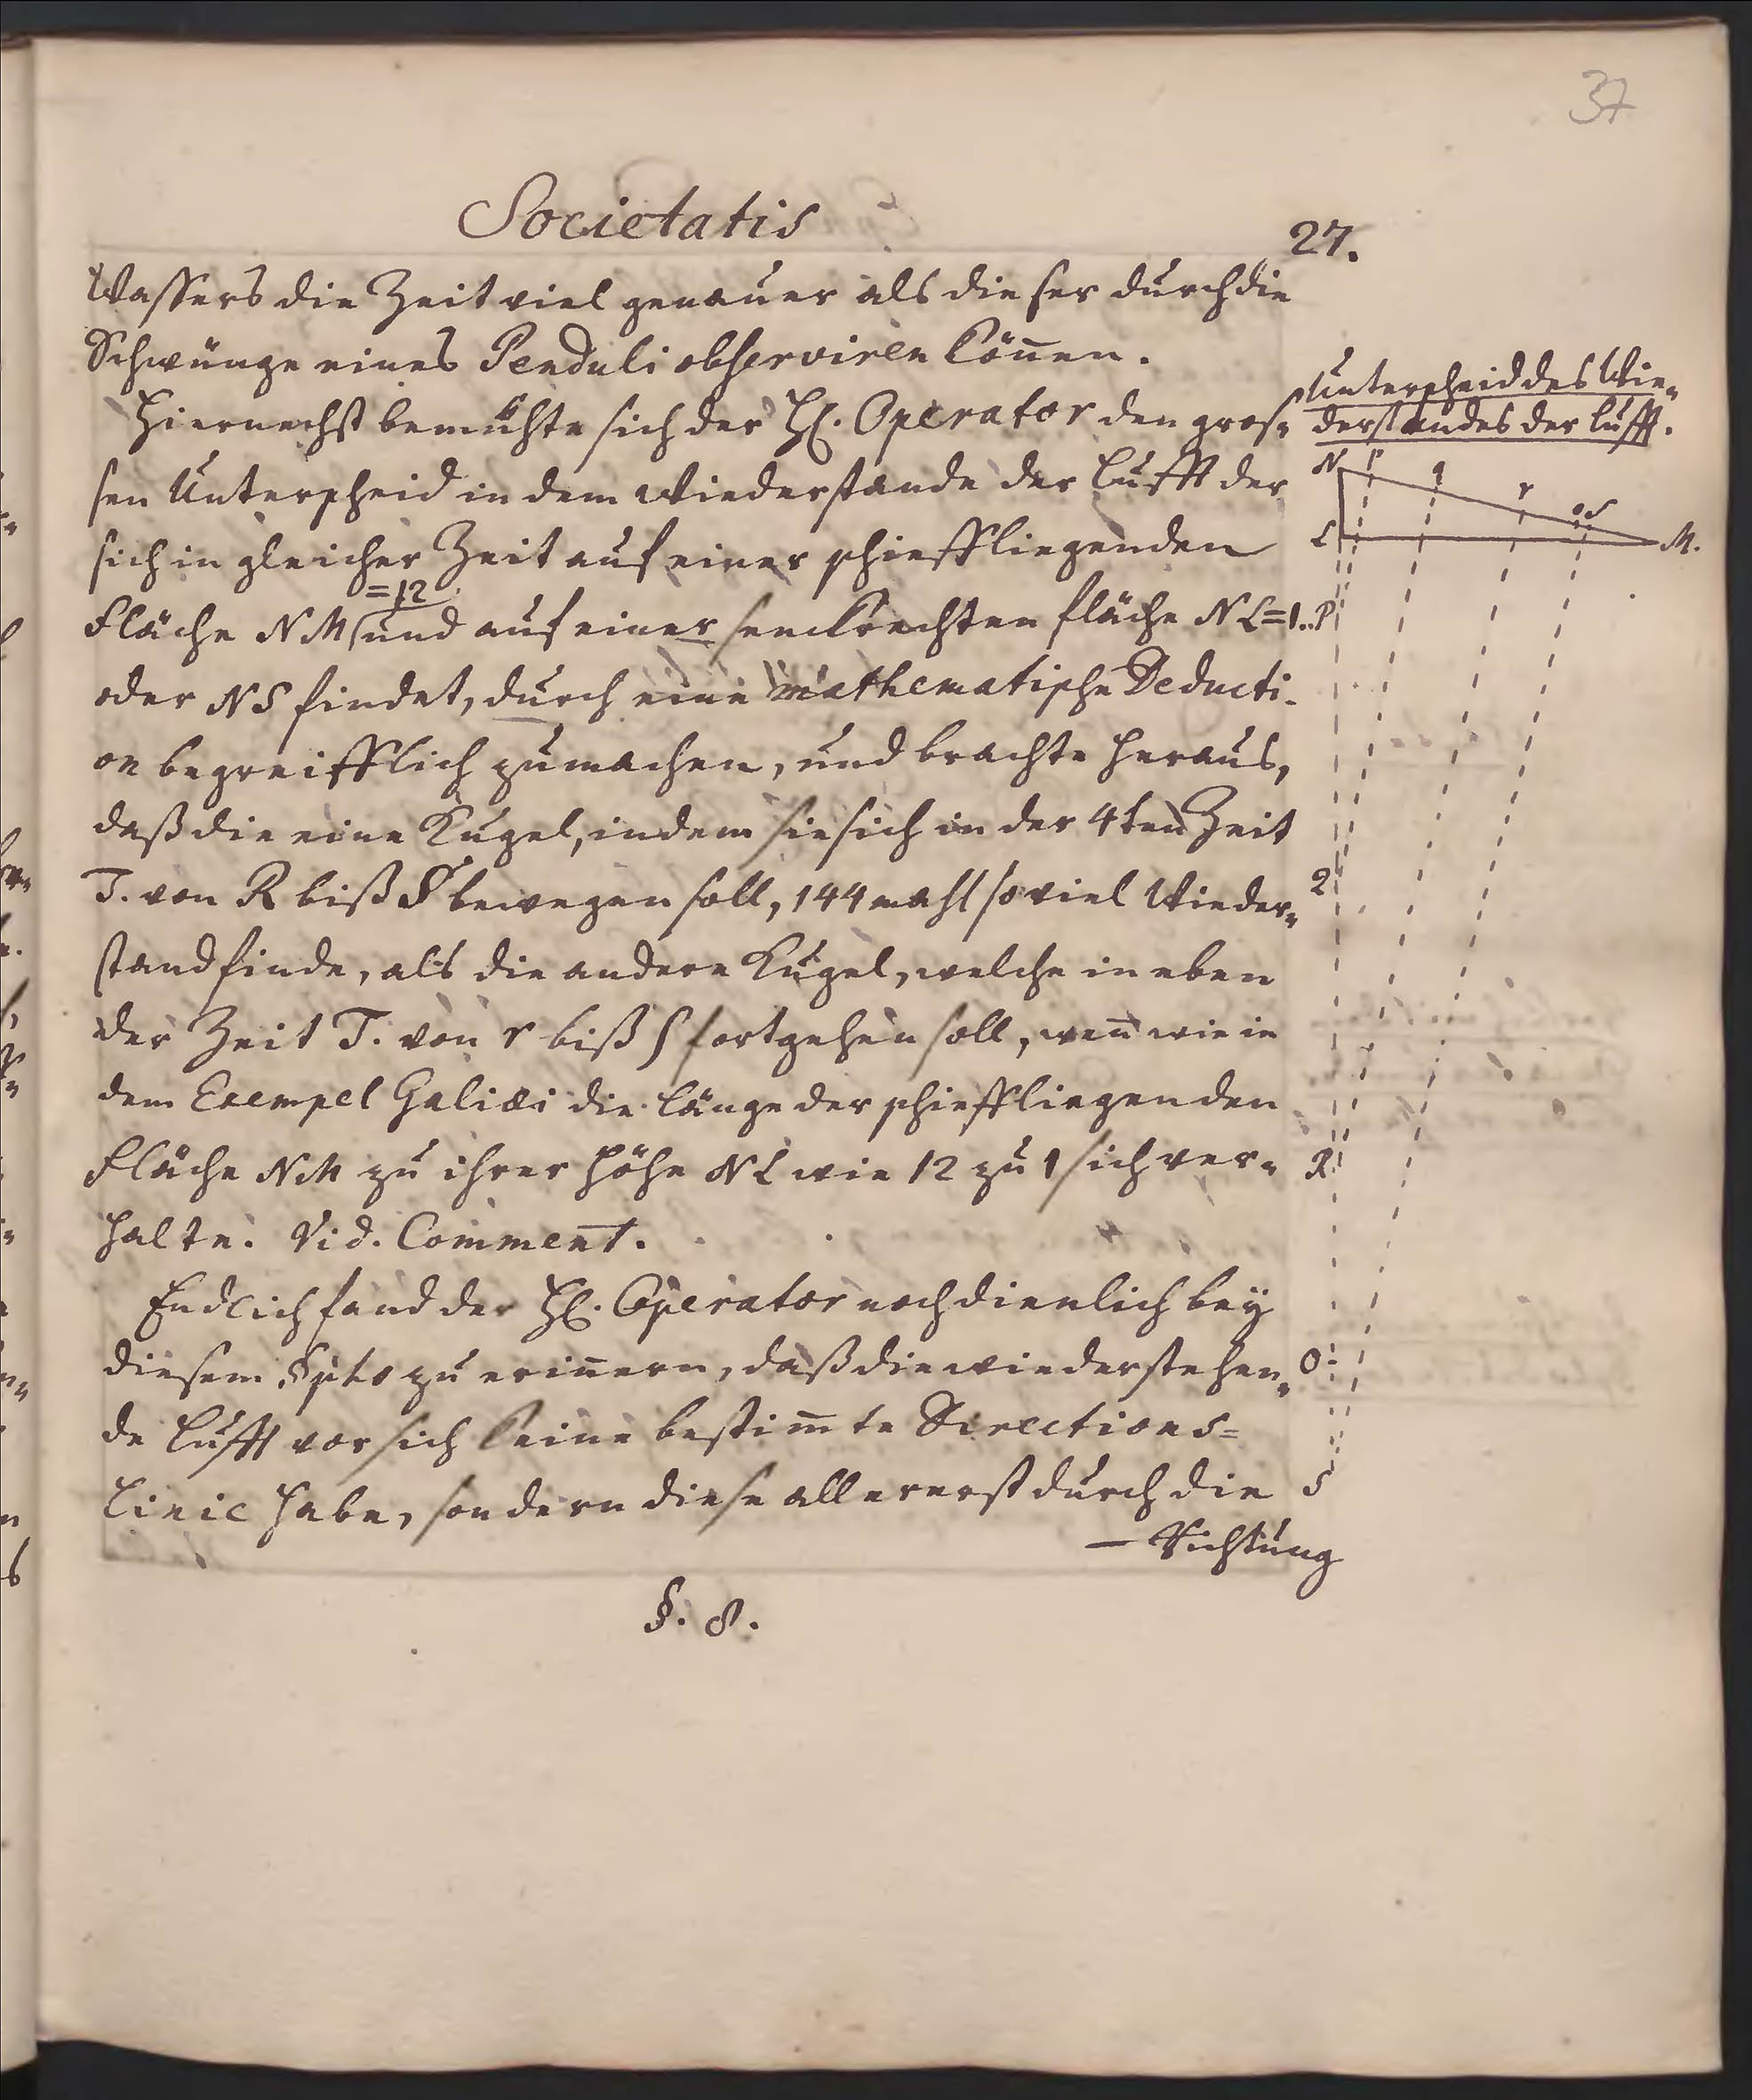 37
Societatis
27.
Wassers die Zeit viel genauer als dieser durch die
Schwünge eines Penduli observiren können.
Hiernechst bemühte sich der H. Operator den gros=
sen Unterscheid in dem Wiederstande der Lufft der
sich in gleicher Zeit auf einer schieffliegenden
=12
Fläche NM und auf einer senckrechten fläche NL=1.
oder NS findet, durch eine mathematische Deducti-
on begreifflich zu machen, und brachte heraus,
daß die eine Kugel, indem sie sich in der 4ten Zeit
T. von R biß S bewegen soll, 144 mahl so viel Wieder=
stand finde, als die andere Kugel, welche in eben
der Zeit T. von r biß s fortgehen soll, wen̄ wie in
dem Exempel Galilæi die Länge der schieffliegenden
Fläche NM zu ihrer Höhe NL wie 12 zu 1 sich ver=
halte. Vid. Comment.
Endlich fand der H. Operator noch dienlich bey
diesem §pho zu erin̄ern, daß die wiederstehen=
de Lufft vor sich keine bestim̄te Directions=
Linie habe, sondern diese allererst durch die
— Richtung
§. 8.
Unterscheid des Wie=
derstandes der Lufft.
N p q r o s
L M.
P
Q
R
O
S